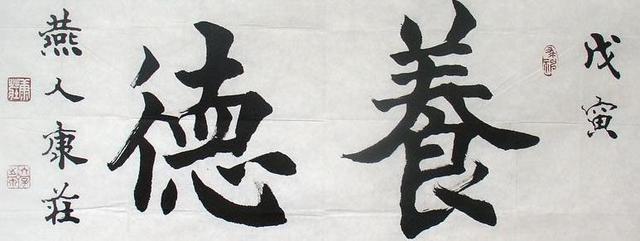 戊寅
養德
燕人康莊